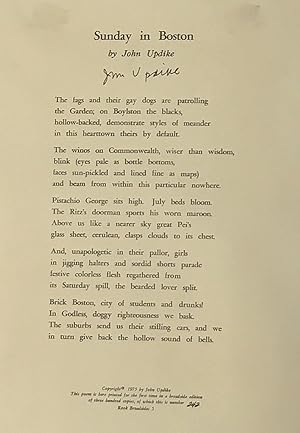 Sunday in Boston
by John Updike
John Updike
The fags and their gay dogs are patrolling
the Garden; on Boylston the blacks,
hollow-backed, demonstrate styles of meander
in this hearttown theirs by default.
The winos on Commonwealth, wiser than wisdom,
blink (eyes pale as bottle bottoms,
faces sun-pickled and lined fine as maps)
and beam from within this particular nowhere.
Pistachio George sits high. July beds bloom.
The Ritz's doorman sports his worn maroon.
Above us like a nearer sky great Pei's
glass sheet, cerulean, clasps clouds to its chest.
And, unapologetic in their pallor, girls
in jigging halters and sordid shorts parade
festive colorless flesh regathered from
its Saturday spill, the bearded lover split.
Brick Boston, city of students and drunks!
In Godless, doggy righteousness we bask.
The suburbs send us their stilling cars, and we
in turn give back the hollow sound of bells.
Copyright© 1975 by John Updike
This poem is here printed for the first time in a broadside edition
of three hundred copies, of which this is number 242
Rook Broadsides 5